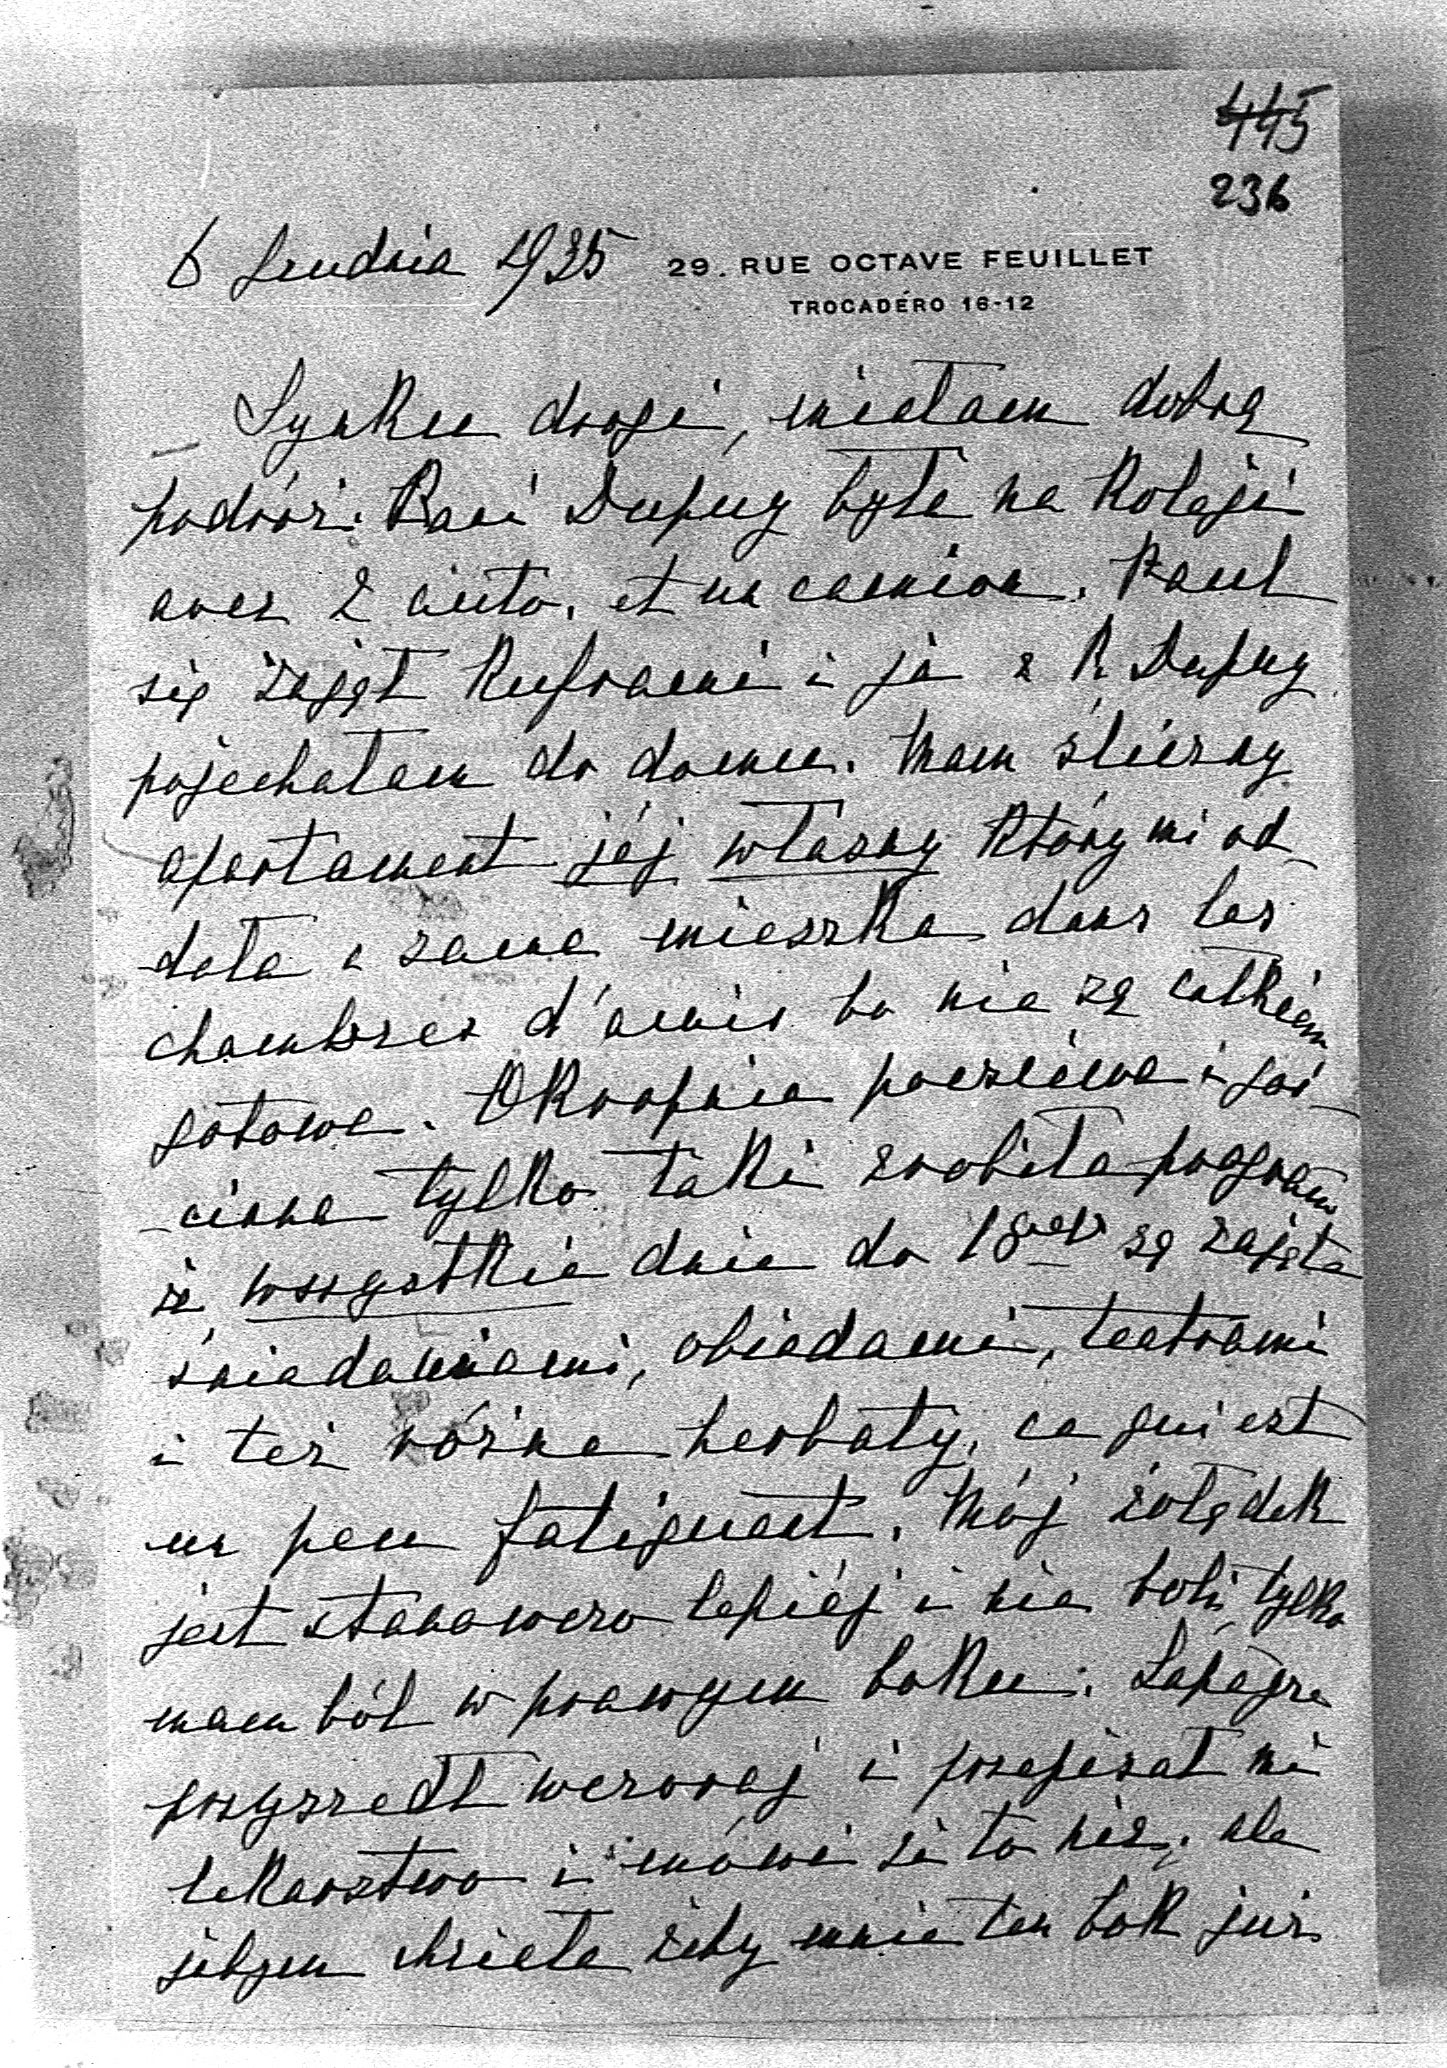 445
236
6 Grudnia 1935 29. RUE OCTAVE FEUILLET
TROCADÉRO 16-12
Synku drogi, miałam dobrą
podróż. Pani Dupuy była na Koleji
avec 2 auto. et un camion. Paul
się zajął Kuframi i ja z P. Dupuy
pojechałam do domu. Mam śliczny
apartament jéj własny Który mi od
dała a sama mieszka dans les
chambres d'amis bo nie są całkiem
gotowe. Okropnie poczciwa i goś
cinna tylko taki zrobiła program
że wszystkie dnie do 18go są zajęte
śniadaniami, obiadami, teatrami
i też różne herbaty, ce qui est
un peu fatiguant. Mój żołądek
jest stanowczo lepiéj i nie boli tylko
mam ból w prawym boku. Lapagre
przyszedł wczoraj i przepisał mi
lekarstwo i mówi że to nic, ale
jabym chciała żeby mnie ten bok już